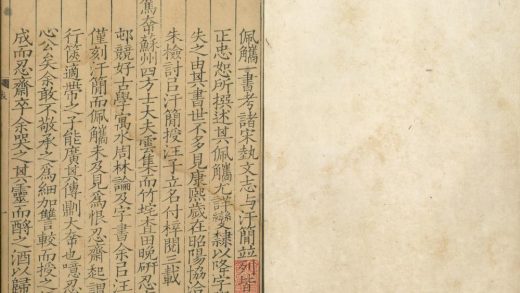 佩觿一書考諸宋藝文志与汗簡竝列皆
正忠恕所撰述其佩觿尤詳變隸以降字
失之由其書世不多見康熙歲在昭陽協洽
朱檢討㠯汗簡授汪子立名付梓閱三載
駕幸蘇州四方士大夫雲集而竹垞直田晚研忍
邨競好古學寓水周林論及字書余㠯汪
僅刻汗簡而佩觿未及見爲恨忍齋起謂
行篋適携之子能廣其傳則大幸也噫忍
心公矣余敢不敬承之爲細加讐較而授之
成而忍齋卒余哭之其靈而酹之酒以歸